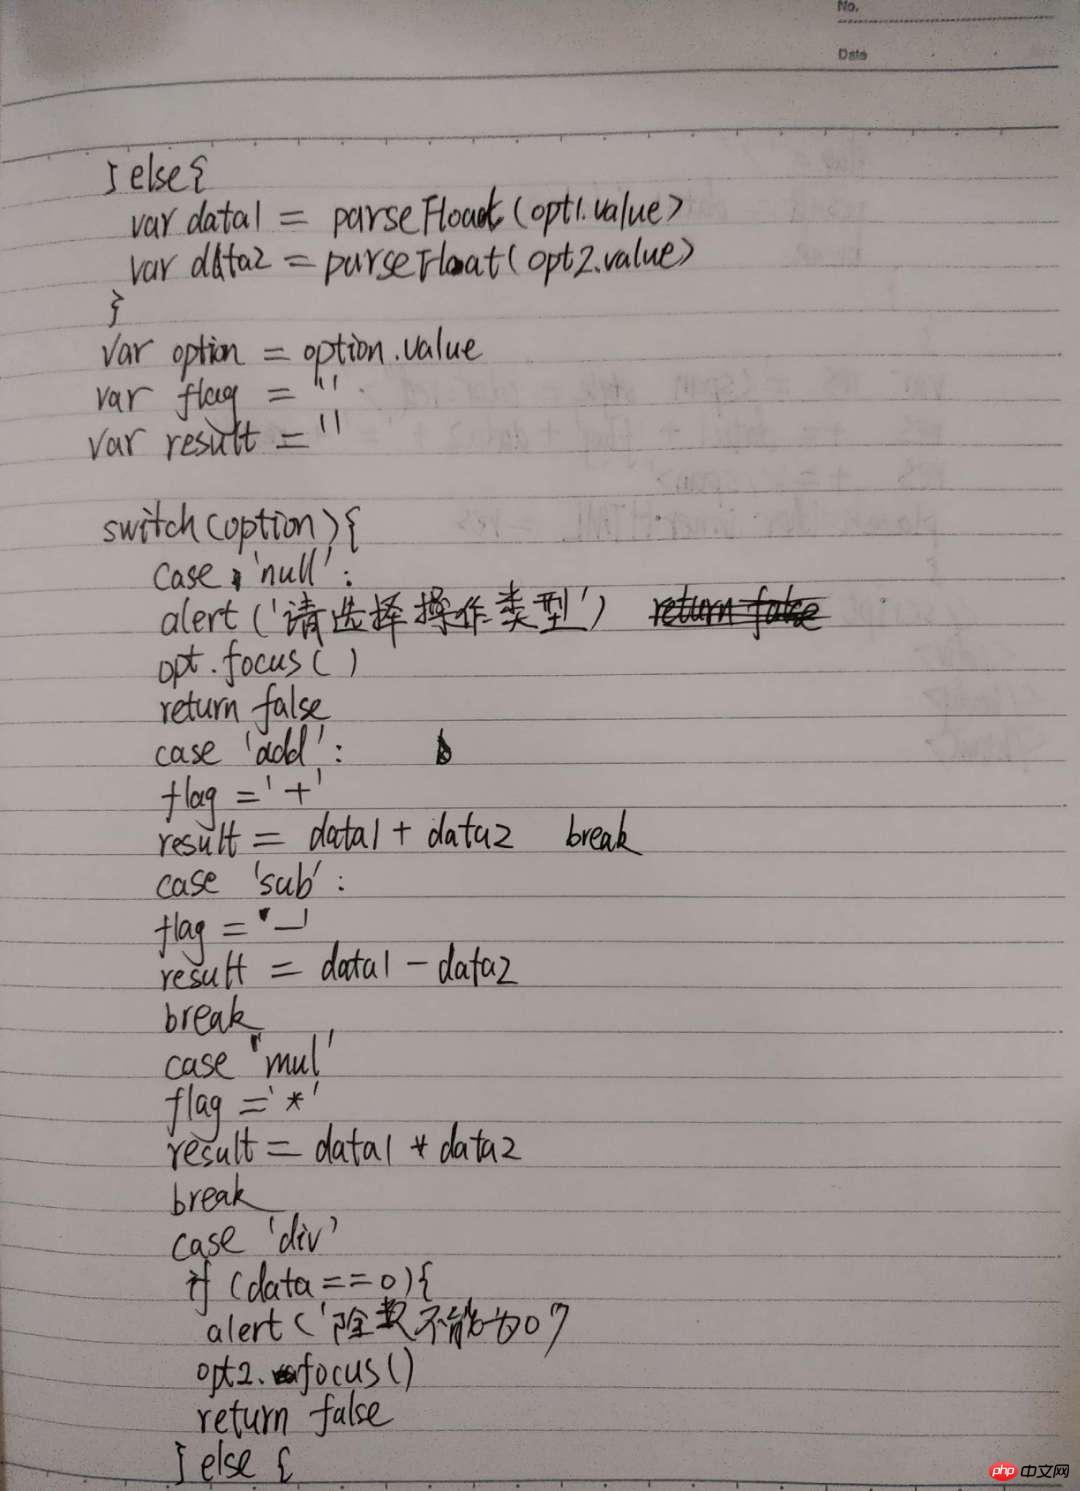 No.
Date
} else{
var data1 = parseFloat(opt1.value)
var data2 = parseFloat(opt2.value)
}
var option = option.value
var flag = ''
var result = ''
switch(option){
case 'null':
alert('请选择操作类型')
opt.focus()
return false
case 'add':
flag ='+'
result = data1 + data2 break
case 'sub':
flag = '-'
result = data1 - data2
break
case 'mul'
flag ='*'
result = data1 * data2
break
case 'div'
if (data==0){
alert('除数不能为0')
opt2.focus()
return false
} else {
php 中文网